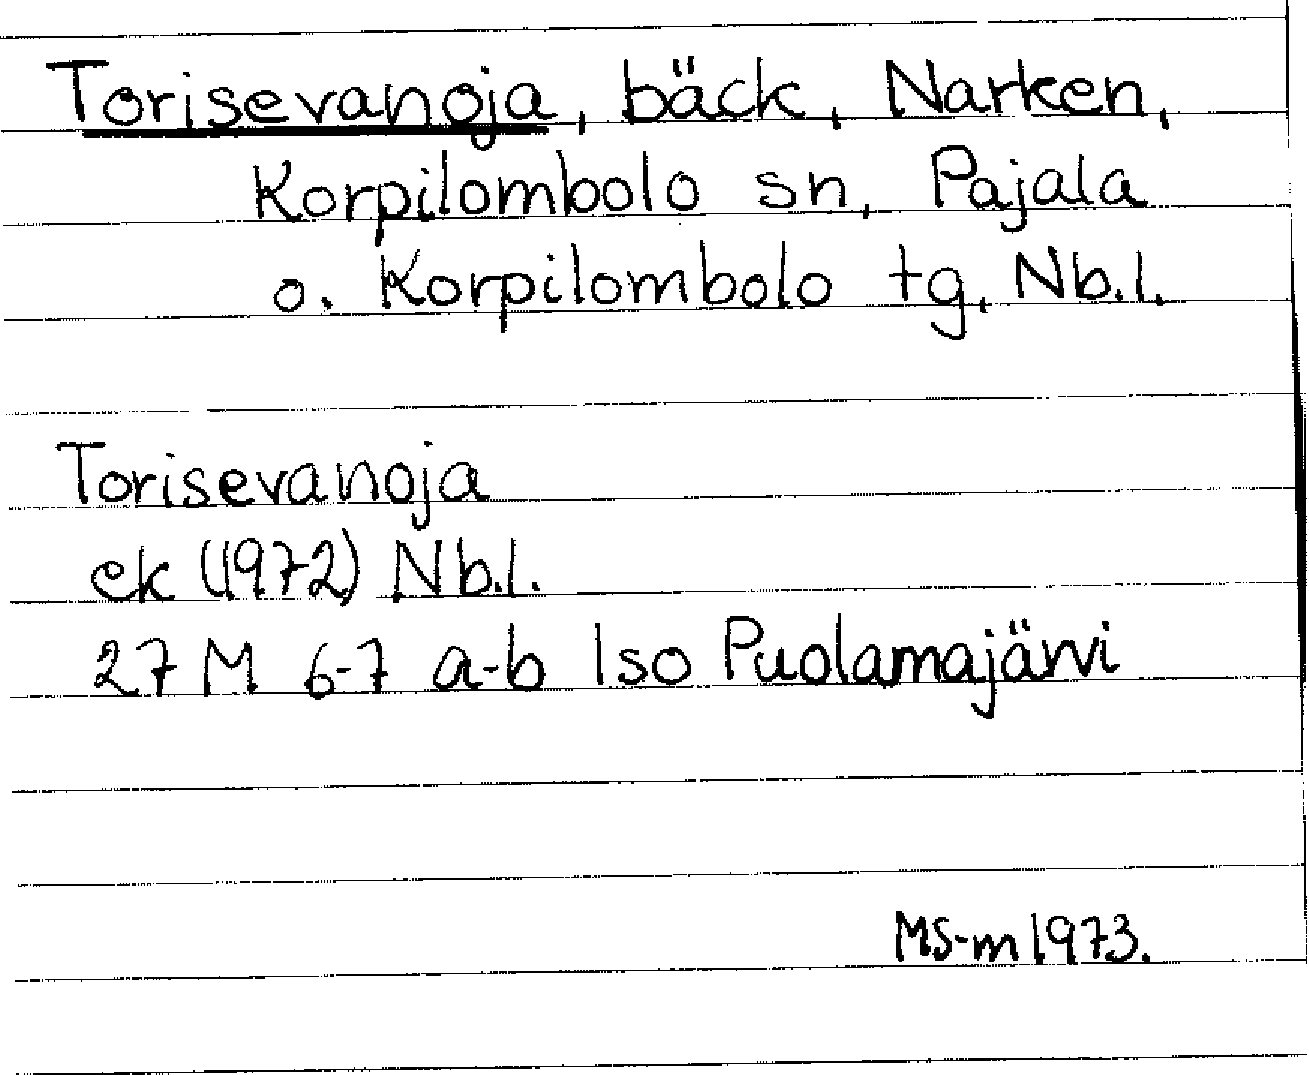 Torisevanoja, bäck, Narken,
Korpilombolo sn, Pajala
o. Korpilombolo tg, Nb.l.
Torisevanoja
ek (1972) Nb.l.
27 M 6-7 a-b Iso Puolamajärvi
MS-m 1973.